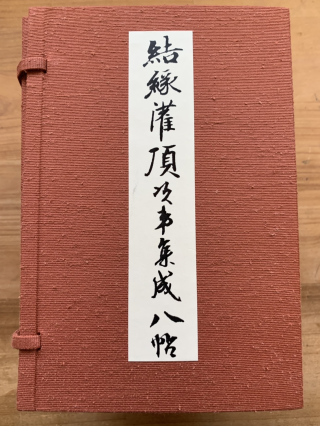 結縁灌頂次第集成八帖